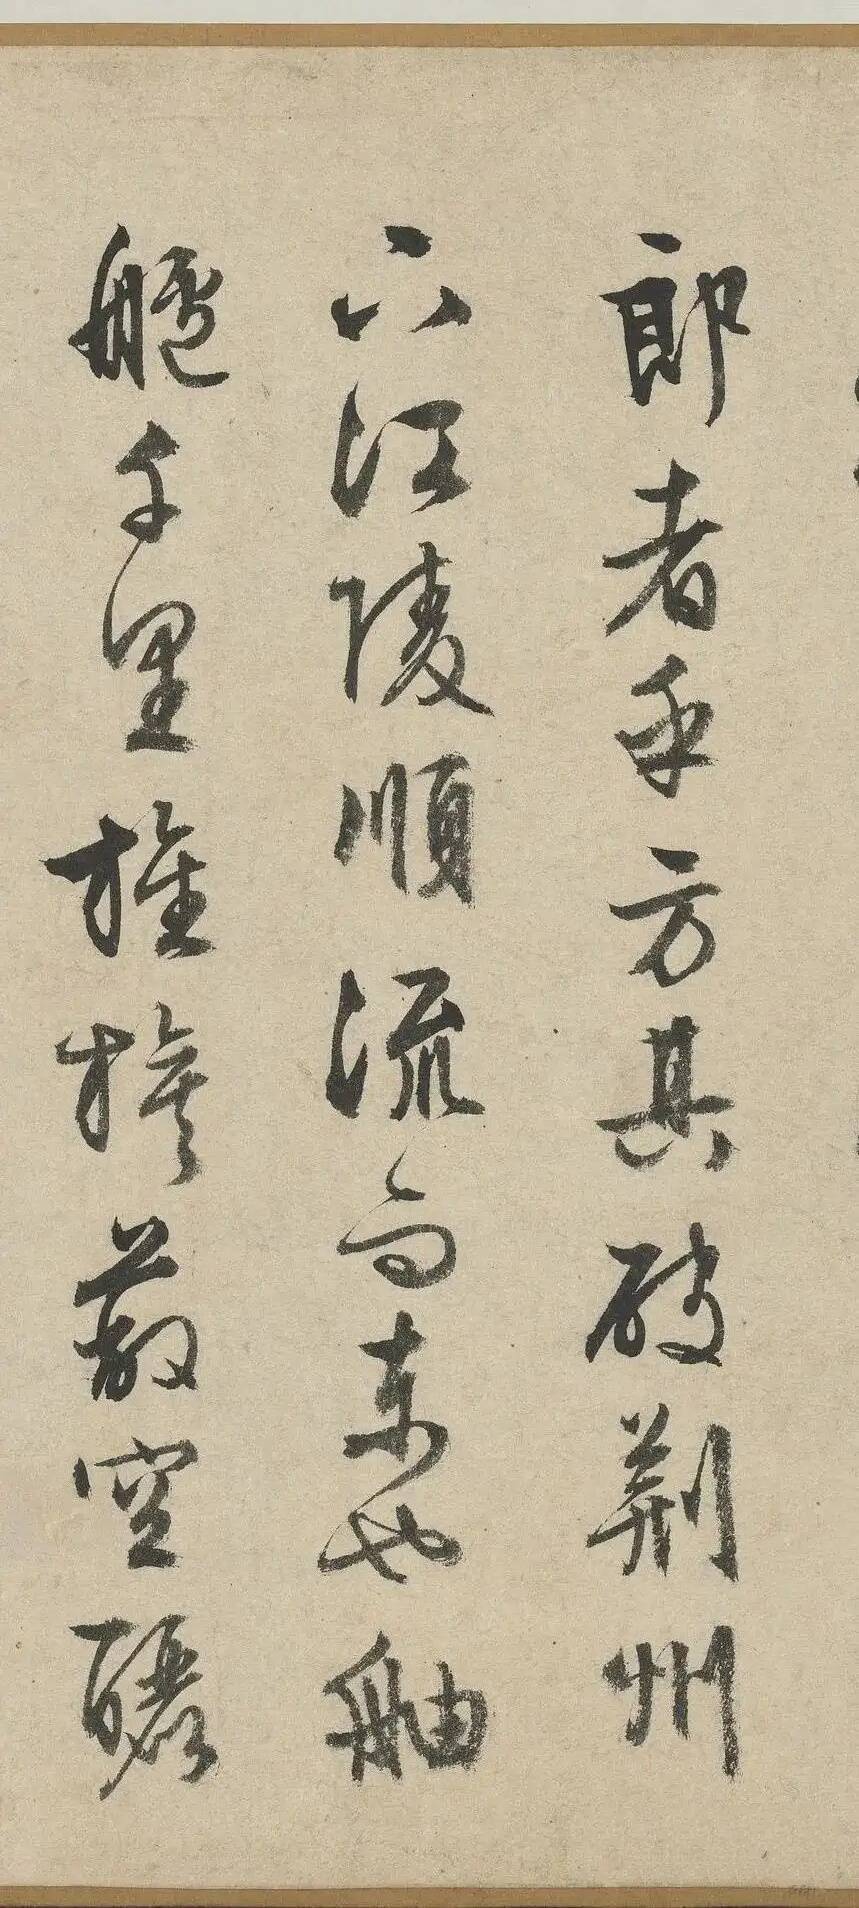 郎者乎方其破荊州
下江陵順流而東也舳
艫千里旌旗蔽空釃